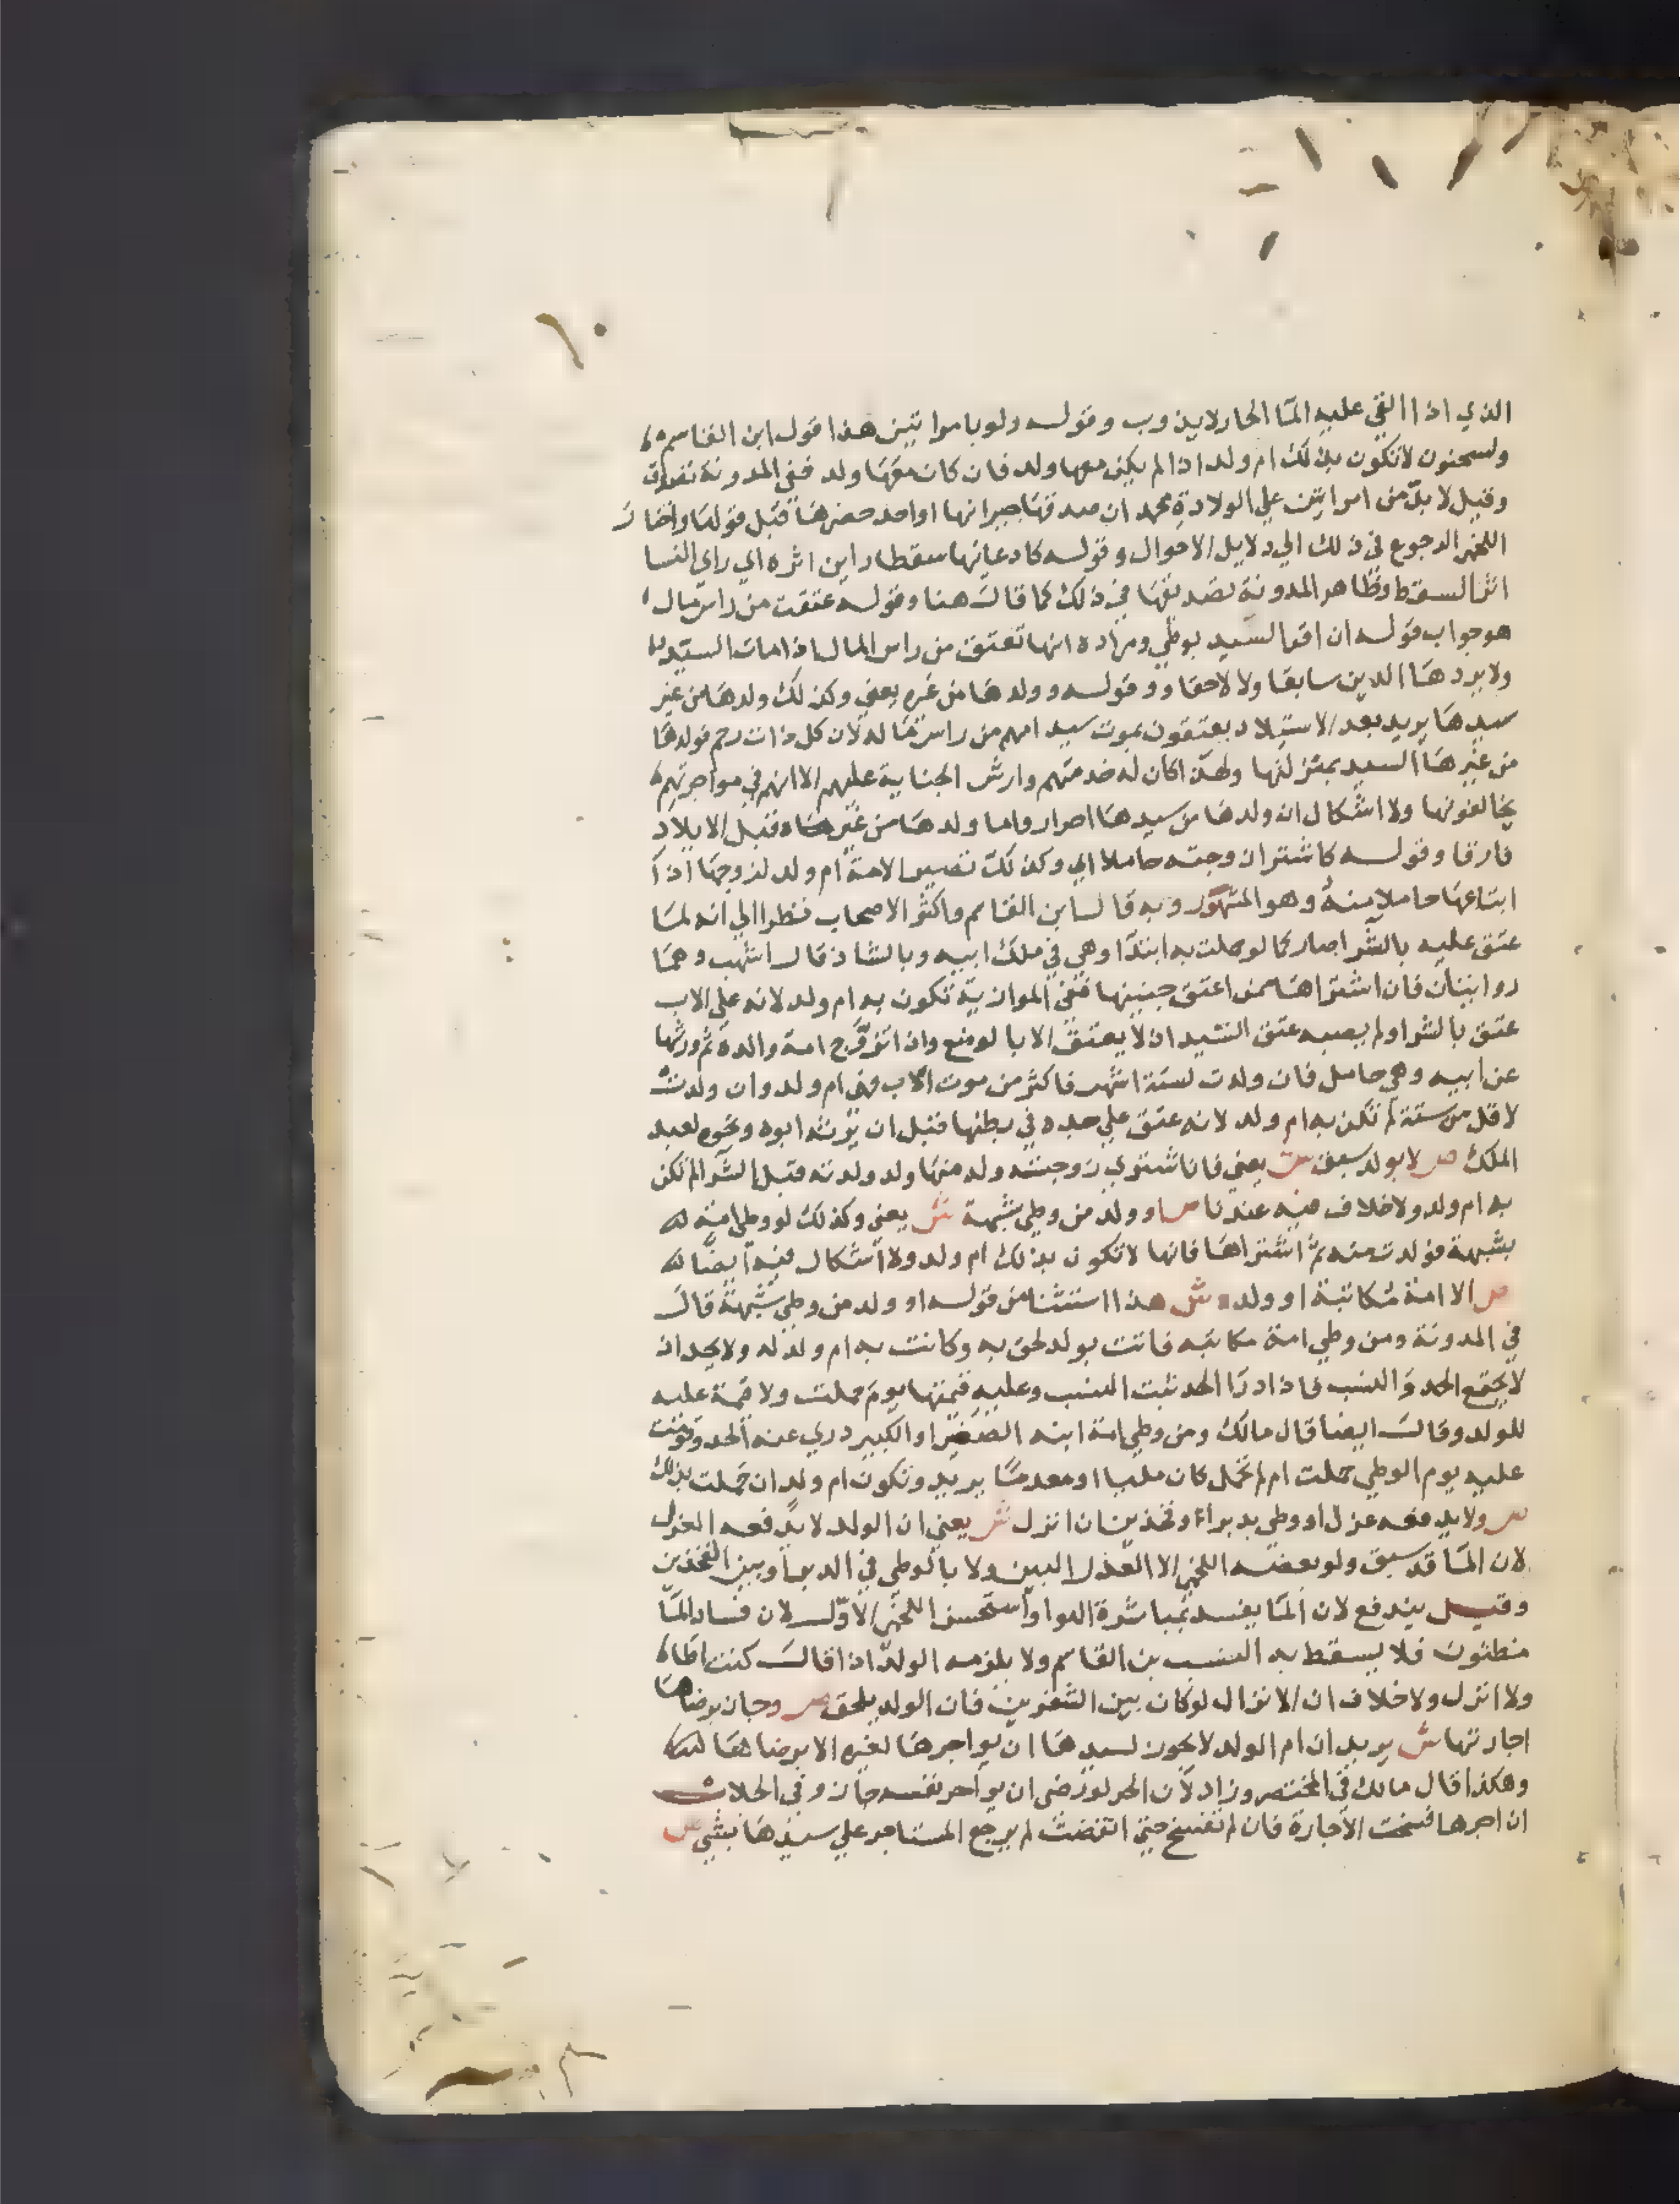 ١٠
الذي اذا القي عليه الما الحار لايذوب وقوله ولو بامراتين هذا قول ابن القاسم
ولسحنون لا تكون بذلك ام ولد اذا لم يكن معها ولد فان كان معها ولد ففي المدونة تصدق
وقيل لا بد من امراتين علي الولادة محمد ان صدقها جيرانها او احد حضرها قبل قولها واختار
اللخمي الرجوع في ذلك الي دلايل الاحوال وقوله كادعايها سقطا راين اثره اي راي النسا
اثر السقط وظاهر المدونة تصديقها في ذلك كما قال هنا وقوله عتقت من راس مال
هو جواب قوله ان اقر السيد بوطي ومراده انها تعتق من راس المال اذا مات السيد
ولا يردها الدين سابقا ولا لاحقا وقوله وولدها من غيره يعني وكذلك ولدها من غير
سيدها يريد بعد الاستيلاد يعتقون بموت سيد امهم من راس ماله لان كل ذات رحم فولدها
من غير السيد بمنزلتها ولهذا كان له خدمتهم وارش الجناية عليهم الا انهم في مواجرتهم
يخالفونها ولا اشكال ان ولدها من سيدها احرار واما ولدها من غيره قبل الايلاد
فارقا وقوله كاشترا زوجته حاملا اي وكذلك تصير الامة ام ولد لزوجها اذا
ابتاعها حاملا منه وهو المشهور وبه قال ابن القاسم واكثر الاصحاب نظرا الي انه لما
عتق عليه بالشرا صار كما لو حملت به ابتدا وهي في ملك ابيه وبالشاذ قال اشهب وهما
روايتان فان اشتراها ممن اعتق جنينها ففي الموازية تكون به ام ولد لانه علي الاب
عتق بالشرا ولم يصبه عتق السيد اذ لا يعتق الا بالوضع وان تزوج امة والده ثم ورثها
عن ابيه وهي حامل فان ولدت لستة اشهر فاكثر من موت الاب فهي ام ولد وان ولدت
لاقل من ستة لم تكن به ام ولد لانه عتق علي جده في بطنها قبل ان يرثه ابوه ونحوه لعبد
الملك ص لا بولد سبق ش يعني فان اشتري زوجته ولد منها ولد ولدته قبل الشرا لم تكن
به ام ولد ولا خلاف فيه عندنا ص او ولد من وطي شبهة ش يعني وكذلك لو وطي امة
بشبهة فولدت منه ثم اشتراها فانها لا تكون بذلك ام ولد ولا اشكال فيه ايضا
ص الا امة مكاتبة او ولده ش هذا استثنا من قوله او ولد من وطي شبهة قال
في المدونة ومن وطي امة مكاتبه فاتت بولد لحق به وكانت به ام ولد له ولا يحد اذ
لا يجتمع الحد والنسب فاذا درا الحد ثبت النسب وعليه قيمتها يوم حملت ولا قيمة عليه
للولد وقال ايضا قال مالك ومن وطي امة ابنه الصغير او الكبير دري عنه الحد وقومت
عليه يوم الوطي حملت ام لم تحمل كان مليا او معدما يريد وتكون ام ولد ان حملت بذلك
ص ولا يدفعه عزل او وطي بدبر او فخذين ان انزل ش يعني ان الولد لا يدفعه العزل
لان الما قد سبق ولو بعضه اللخمي الا العذل البين ولا بالوطي في الدبر او بين الفخذين
وقيل يندفع لان الما يفسد بمباشرة الهوا واستحسن اللخمي الاول لان فساد الما
مظنون فلا يسقط به النسب بن القاسم ولا يلزمه الولد اذا قال كنت اطا
ولا انزل ولا خلاف ان الانزال لو كان بين الشفرين فان الولد يلحق ص وجاز برضاها
اجارتها ش يريد ان ام الولد لا يجوز لسيدها ان يواجرها لغيره الا برضاها
وهكذا قال مالك في المختصر وزاد لان الحر لو رضي ان يواجر نفسه جاز وفي الجلاب
ان اجرها فسخت الاجارة فان لم تفسخ حتي انقضت لم يرجع المستاجر علي سيدها بشي ص